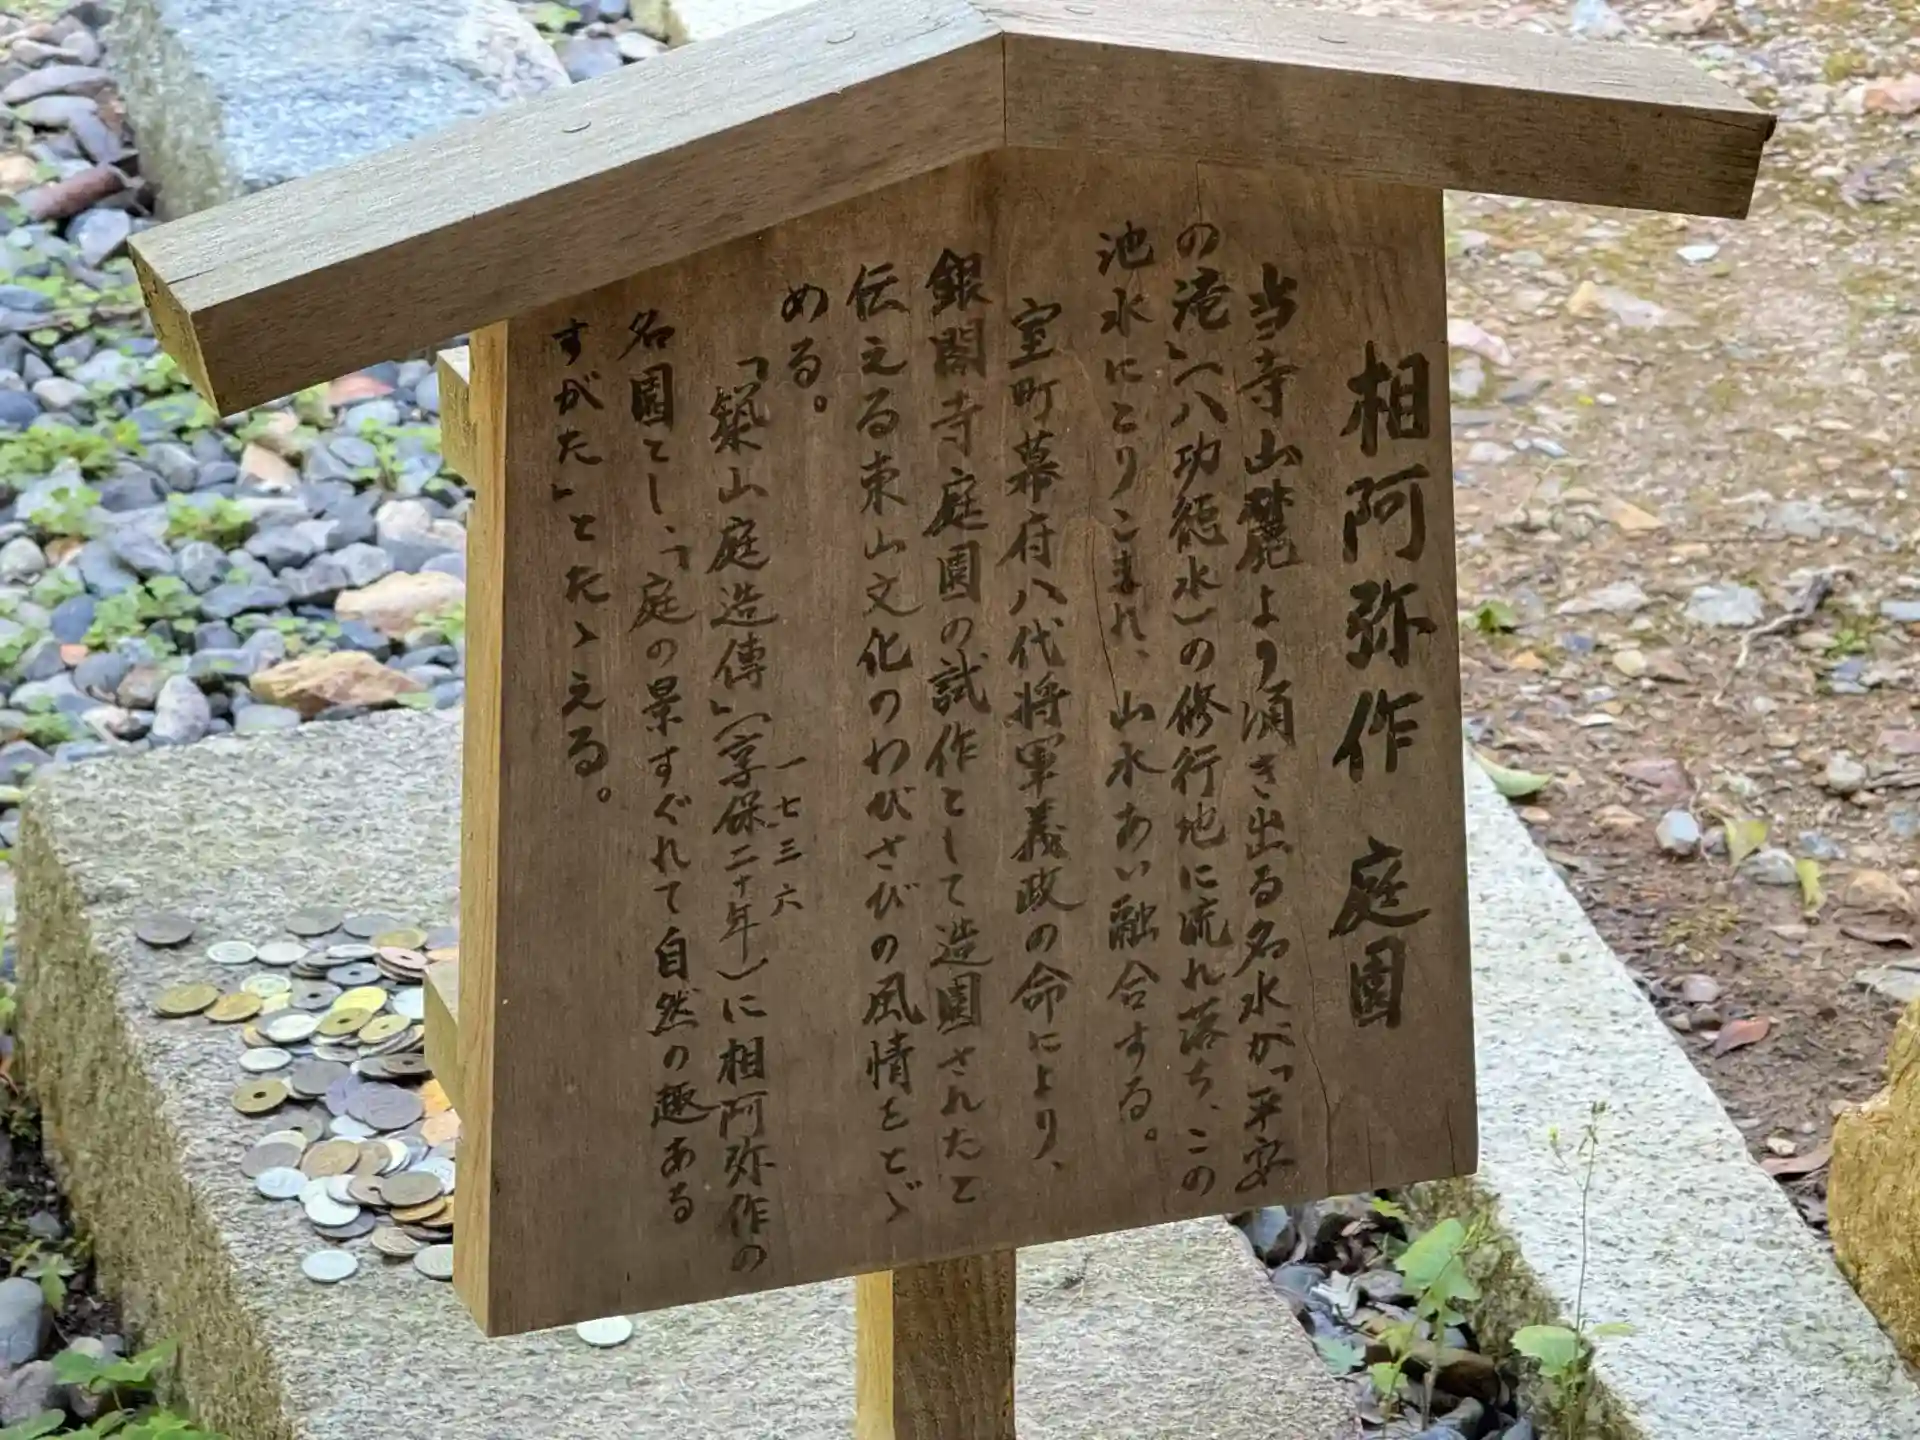 相阿弥作 庭園
当寺山麓より湧き出る名水が「平安
の滝」(八功徳水)の修行地に流れ落ち、この
池水にとりこまれ、山水あい融合する。
室町幕府八代将軍義政の命により、
銀閣寺庭園の試作として造園されたと
伝える東山文化のわびさびの風情をとゞ
める。
一七三六
「築山庭造傳」(享保二十年)に相阿弥作の
名園とし、「庭の景すぐれて自然の趣ある
すがた」とたゝえる。